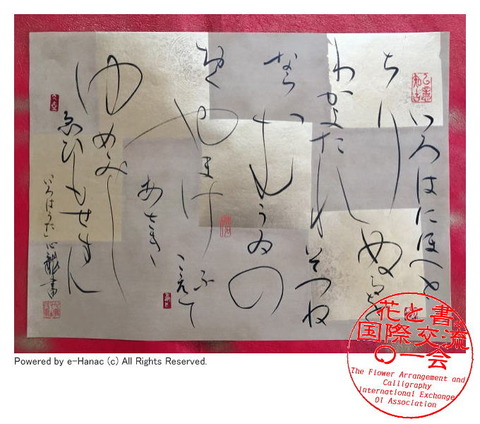 いろはにほへと
ちりぬるを
わかよたれそつね
ならむうゐの
おくやまけふ
こえて
あさき
ゆめみし
ゑひもせすん
いろはうた
Powered by e-Hanac (c) All Rights Reserved.
花と書
国際交流
の一会
The Flower Arrangement and
Calligraphy
International Exchange
Of Association